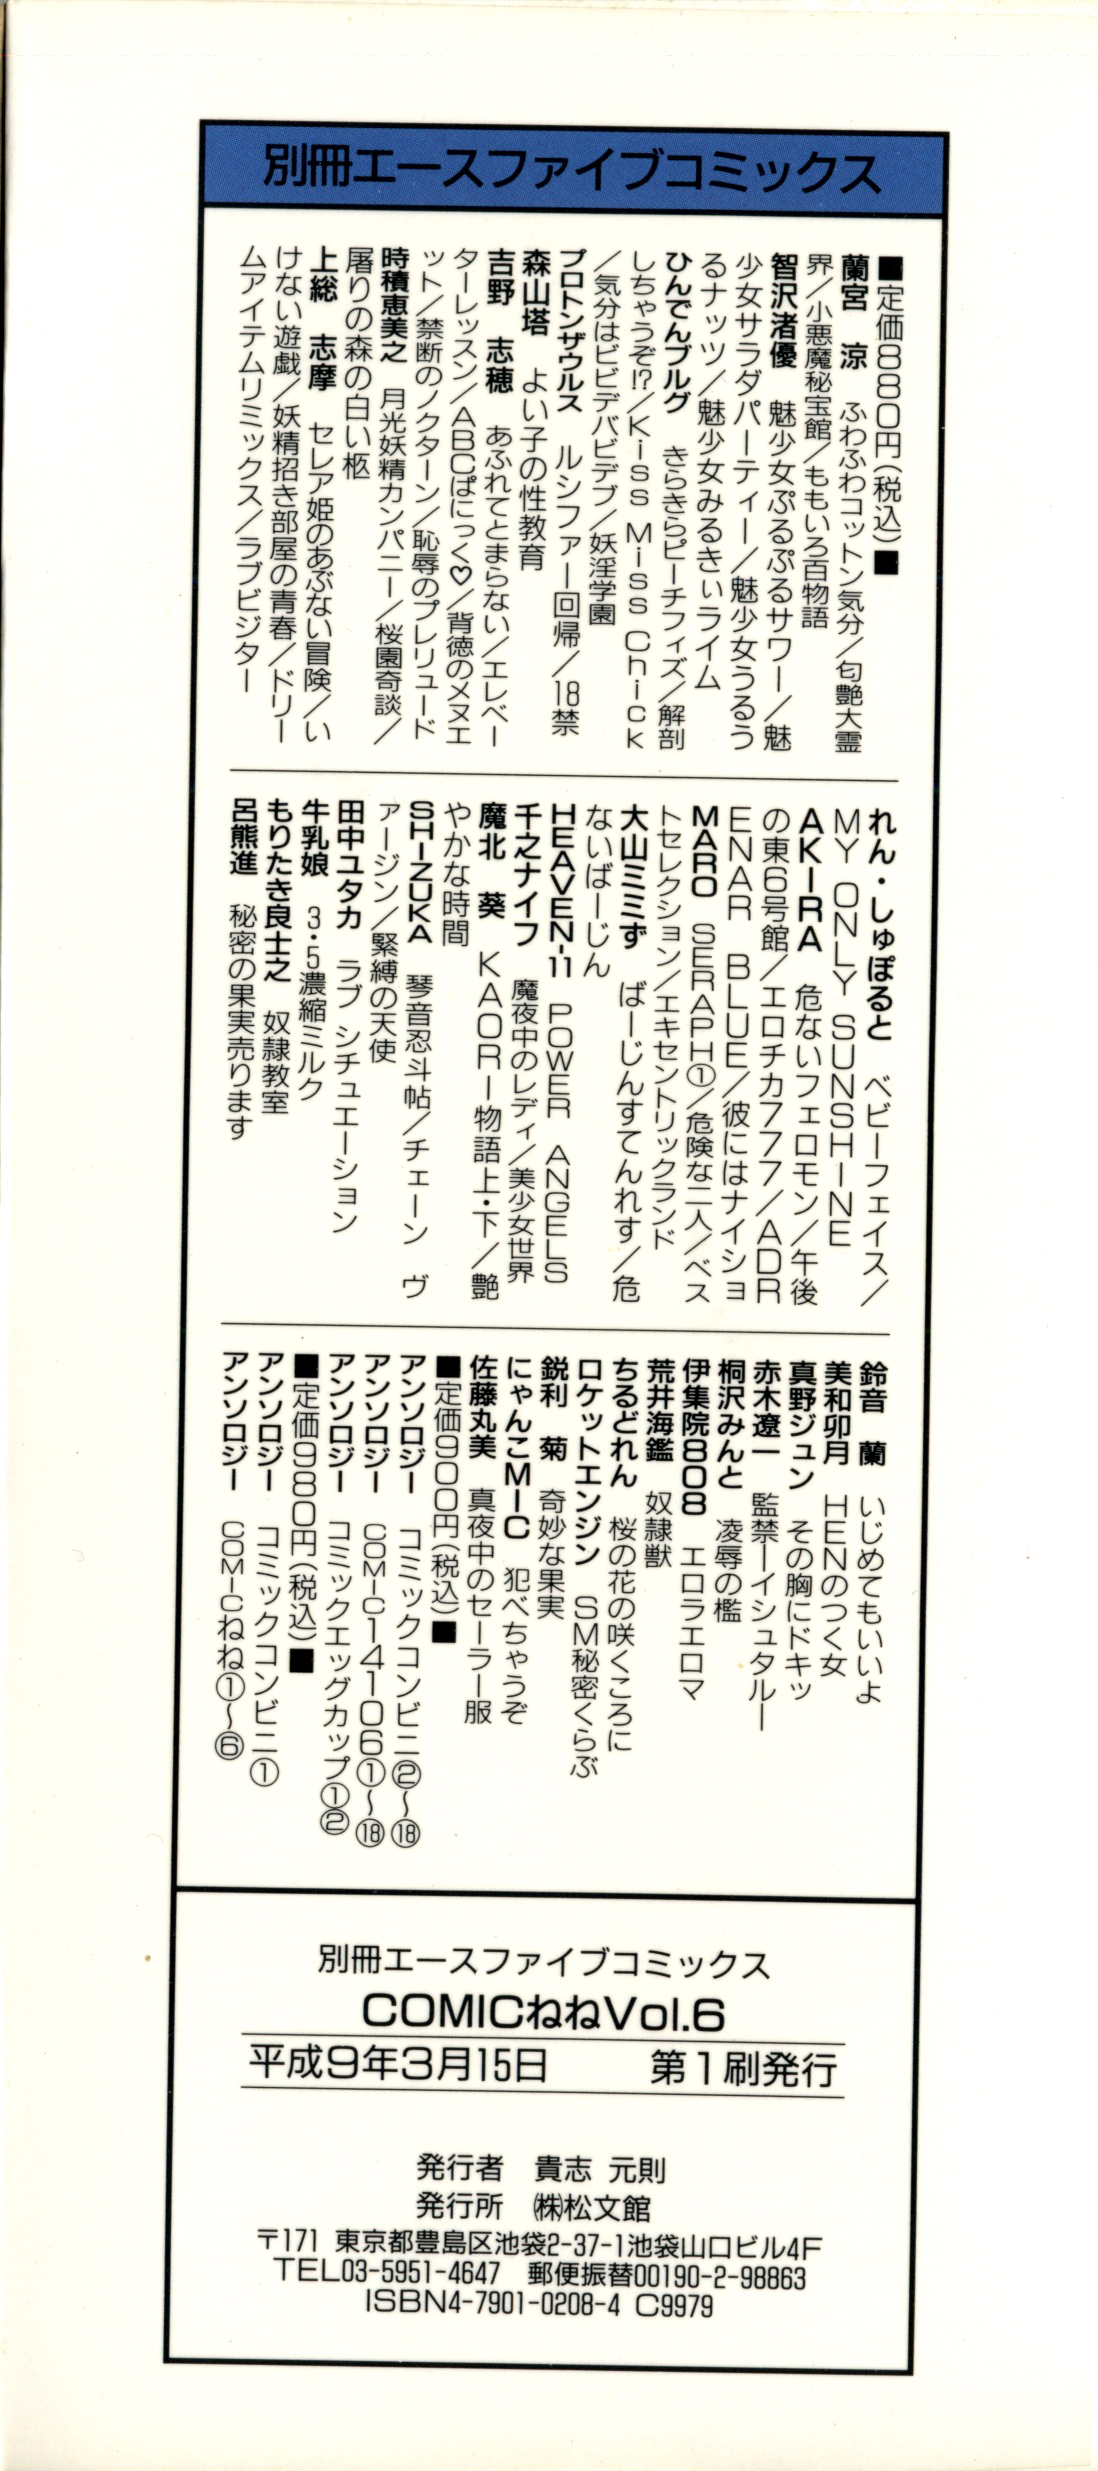 別冊エースファイブコミックス
■定価880円(税込)■
蘭宮　涼　ふわふわコットン気分／匂艶大霊
界／小悪魔秘宝館／ももいろ百物語
智沢渚優　魅少女ぷるぷるサワー／魅
少女サラダパーティー／魅少女うるう
るナッツ／魅少女みるきぃライム
ひんでんブルグ　きらきらピーチフィズ／解剖
しちゃうぞ!?／Kiss Miss Chick
／気分はビビデバビデブ／妖淫学園
プロトンザウルス　ルシファー回帰／18禁
森山塔　よい子の性教育
吉野　志穂　あふれてとまらない／エレベー
ターレッスン／ABCぱにっく♡／背徳のメヌエ
ット／禁断のノクターン／恥辱のプレリュード
時積恵美之　月光妖精カンパニー／桜園奇談／
屠りの森の白い柩
上総　志摩　セレア姫のあぶない冒険／い
けない遊戯／妖精招き部屋の青春／ドリー
ムアイテムリミックス／ラブビジター
れん・しゅぽると　ベビーフェイス／
MY ONLY SUNSHINE
AKIRA　危ないフェロモン／午後
の東6号館／エロチカ777／ADR
ENAR BLUE／彼にはナイショ
MARO　SERAPH①／危険な二人／ベス
トセレクション／エキセントリックランド
大山ミミず　ばーじんすてんれす／危
ないばーじん
HEAVEN-11　POWER ANGELS
千之ナイフ　魔夜中のレディ／美少女世界
魔北　葵　KAORI物語上・下／艶
やかな時間
SHIZUKA　琴音忍斗帖／チェーン　ヴ
ァージン／緊縛の天使
田中ユタカ　ラブ シチュエーション
牛乳娘　3・5濃縮ミルク
もりたき良士之　奴隷教室
呂熊進　秘密の果実売ります
鈴音　蘭　いじめてもいいよ
美和卯月　HENのつく女
真野ジュン　その胸にドキッ
赤木遼一　監禁ーイシュタルー
桐沢みんと　凌辱の檻
伊集院808　エロラエロマ
荒井海鑑　奴隷獣
ちるどれん　桜の花の咲くころに
ロケットエンジン　SM秘密くらぶ
鋭利　菊　奇妙な果実
にゃんこMIC　犯べちゃうぞ
佐藤丸美　真夜中のセーラー服
■定価900円(税込)■
アンソロジー　コミックコンビニ②〜⑱
アンソロジー　COMIC14106①〜⑱
アンソロジー　コミックエッグカップ①②
■定価980円(税込)■
アンソロジー　コミックコンビニ①
アンソロジー　COMICねね①〜⑥
別冊エースファイブコミックス
COMICねねVol.6
平成9年3月15日　第1刷発行
発行者　貴志 元則
発行所　㈱松文館
〒171 東京都豊島区池袋2-37-1池袋山口ビル4F
TEL03-5951-4647　郵便振替00190-2-98863
ISBN4-7901-0208-4 C9979